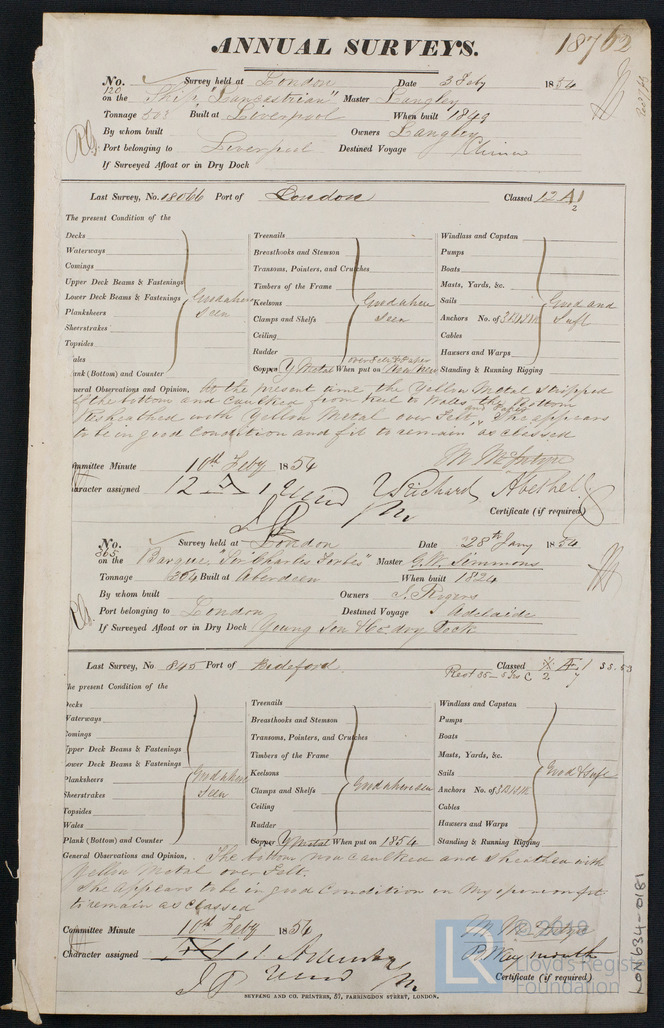 18762
ANNUAL SURVEYS.
No. 120 Survey held at London Date 3 Feby 1854
on the Ship "Lancastrian" Master Langley
Tonnage 503 Built at Liverpool When built 1849
By whom built Owners Langley
Port belonging to Liverpool Destined Voyage China
If Surveyed Afloat or in Dry Dock
Last Survey, No. 18066 Port of London Classed 12 A 1
2
The present Condition of the
Decks Treenails Windlass and Capstan
Waterways Breasthooks and Stemson Pumps
Comings Transoms, Pointers, and Crutches Boats
Upper Deck Beams & Fastenings Timbers of the Frame Masts, Yards, &c.
Lower Deck Beams & Fastenings Good where Keelsons Good where Sails Good and
Planksheers seen Clamps and Shelfs seen Anchors No. of Safe
Sheerstrakes Ceiling Cables
Topsides Rudder over Felt & Paper Hawsers and Warps
ales
lank (Bottom) and Counter Copper Y Metal When put on Now New Standing & Running Rigging
neral Observations and Opinion, At the present time the Yellow Metal stripped
off the bottom and caulked from Keel to Wales the Bottom
Resheathed with Yellow Metal over Felt and Paper, She appears
to be in good Condition and fit to remain as classed
M. McIntyre
mmittee Minute 10th Feby 1854
haracter assigned 12 A 1
Certificate (if required)
No. 365 Survey held at London Date 28th Jany 1854
on the Barque "Sir Charles Forbes" Master G. W. Simmons
Tonnage 364 Built at Aberdeen When built 1824
By whom built Owners S. Rogers
Port belonging to London Destined Voyage Adelaide
If Surveyed Afloat or in Dry Dock Young Son & Co dry Dock
Last Survey, No 845 Port of Bideford Classed Æ 1 35. 53
Rest 35 – 5 Yrs C 2 7
he present Condition of the
ecks Treenails Windlass and Capstan
Waterways Breasthooks and Stemson Pumps
omings Transoms, Pointers, and Crutches Boats
pper Deck Beams & Fastenings Timbers of the Frame Masts, Yards, &c.
ower Deck Beams & Fastenings Keelsons Sails Good & Safe
Planksheers Good where Clamps and Shelfs Good where seen Anchors No. of
Sheerstrakes seen Ceiling Cables
Topsides Rudder Hawsers and Warps
Wales
Plank (Bottom) and Counter Copper Y Metal When put on 1854 Standing & Running Rigging
General Observations and Opinion, The bottom now caulked and sheathed with
Yellow Metal over Felt.
She appears to be in good Condition in My opinion fit
to remain as classed
Committee Minute 10th Feby 1854
M. McIntyre
Character assigned
P. Weymouth
Certificate (if required)
SEYFANG AND CO. PRINTERS, 57, FARRINGDON STREET, LONDON.
LON634-0181
LR
Lloyd's Register
Foundation